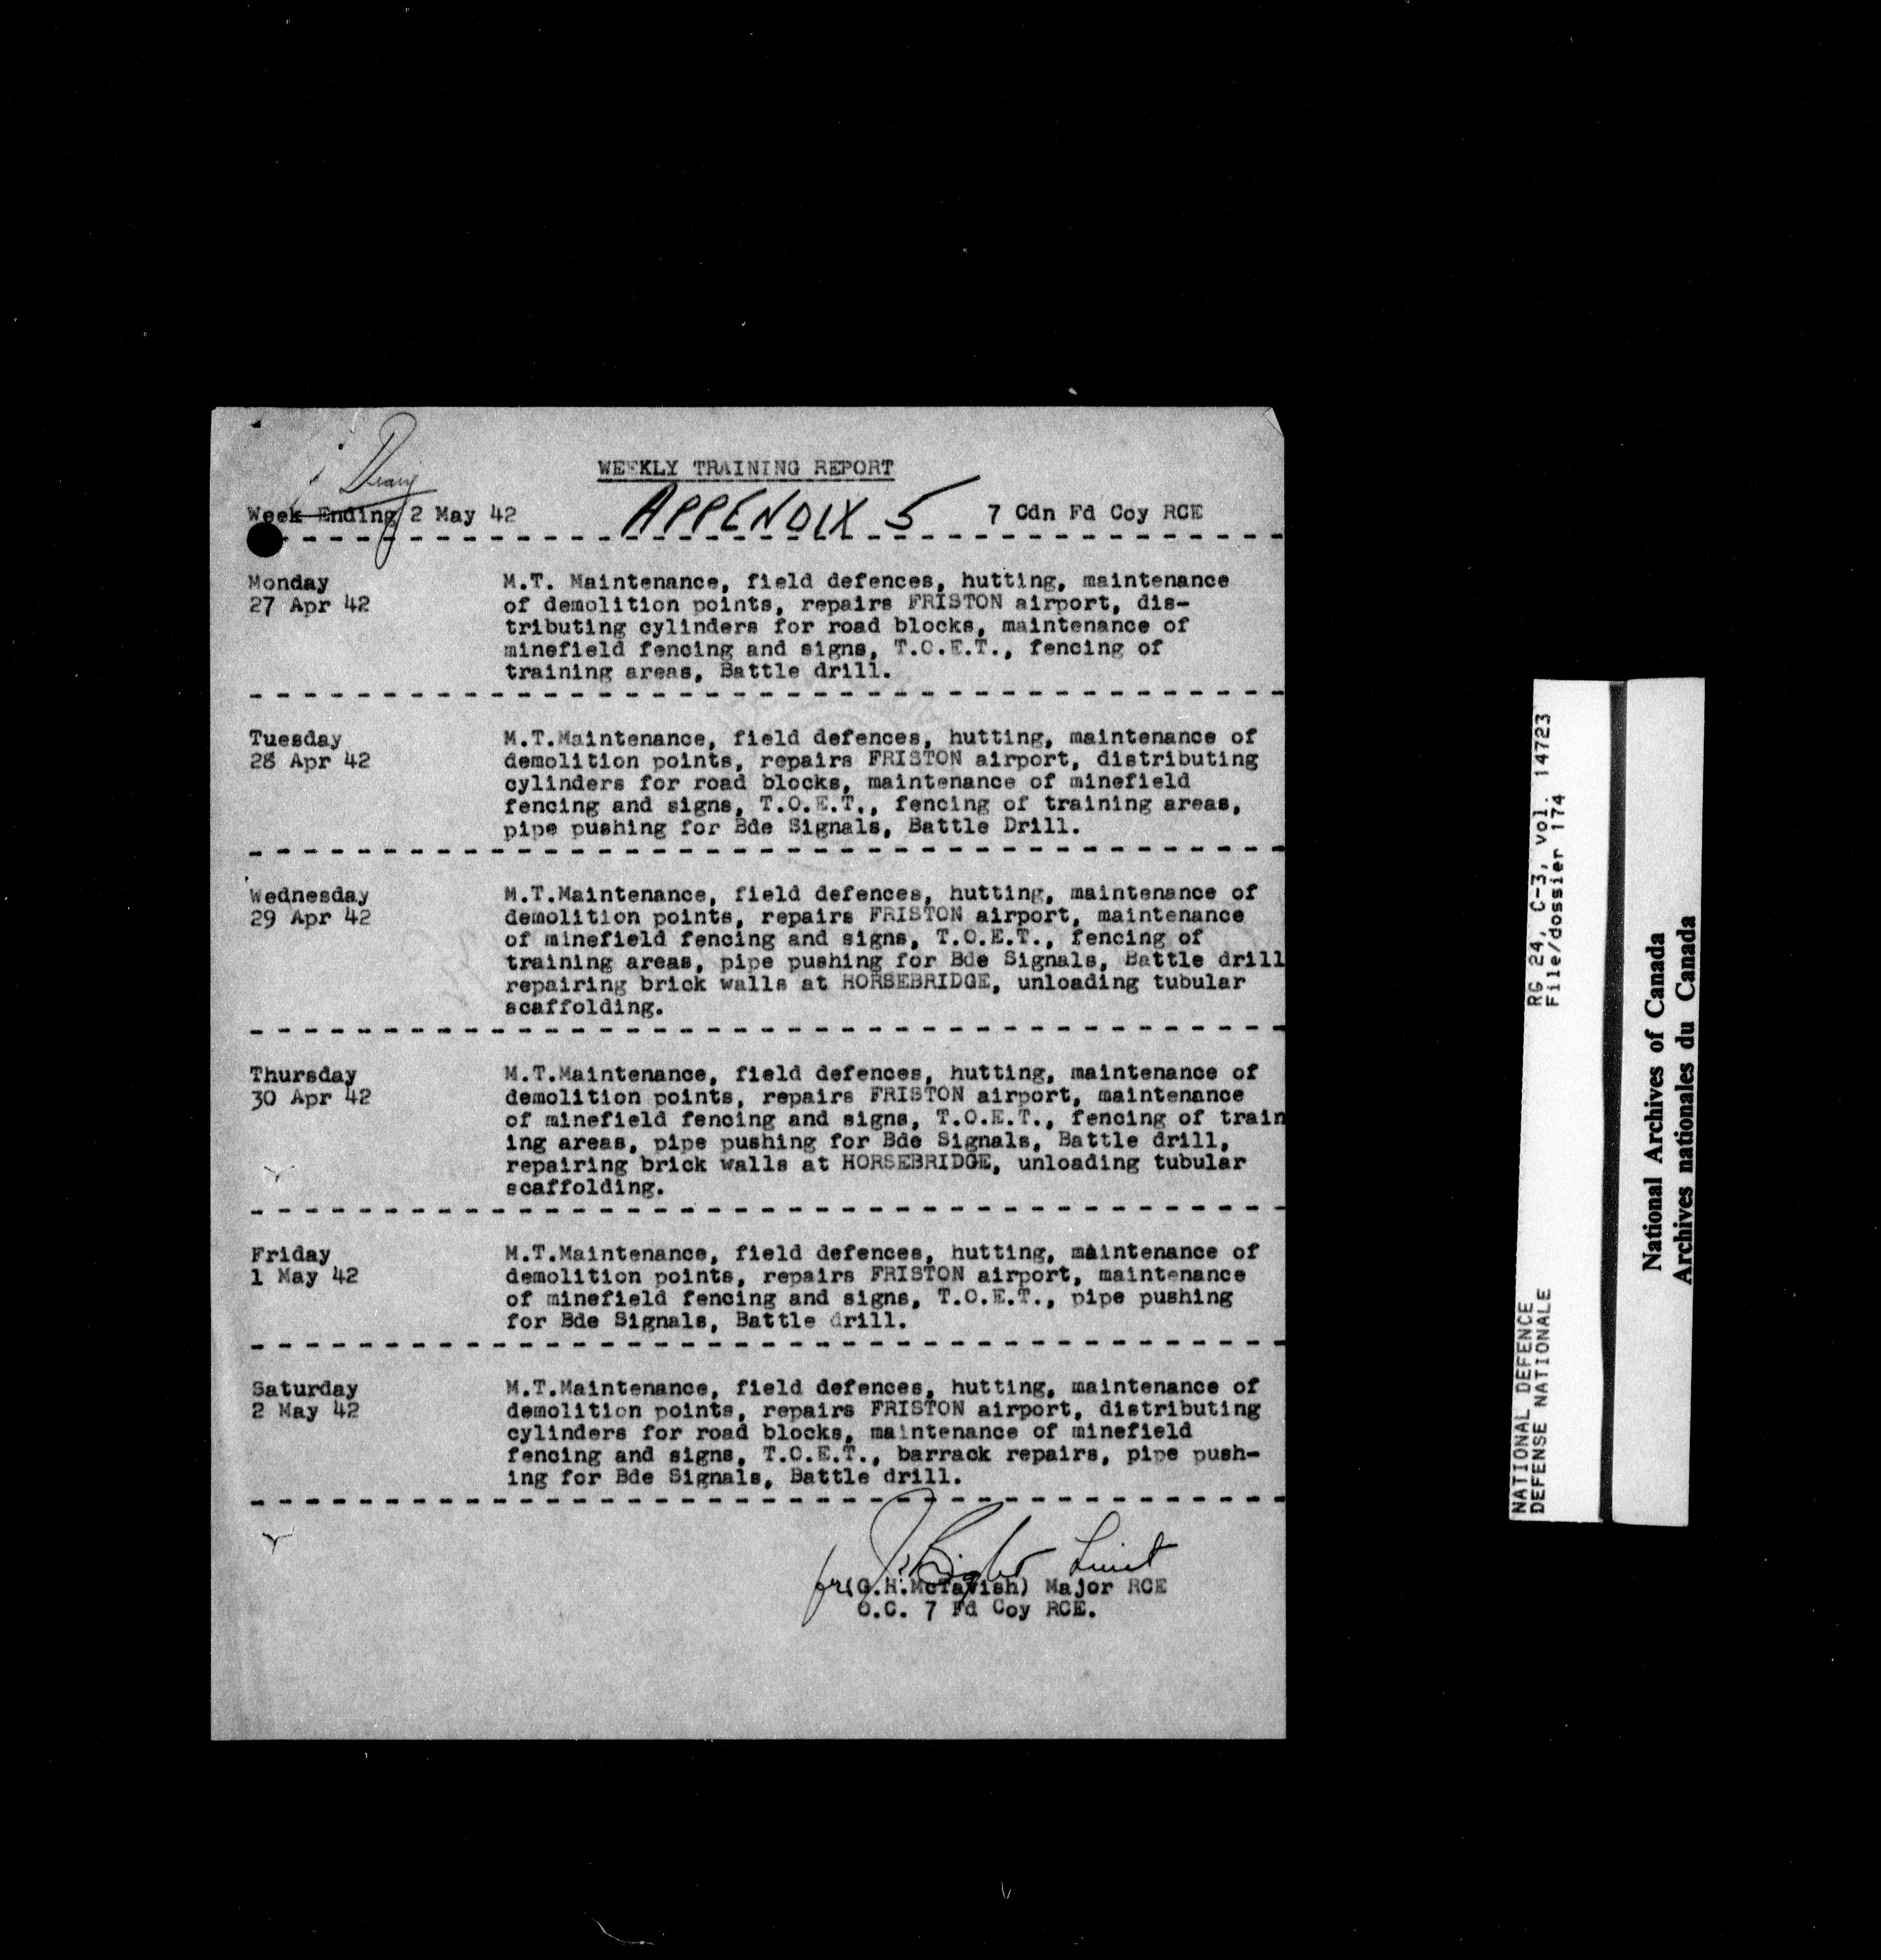 Diary
WEEKLY TRAINING REPORT
Week Ending 2 May 42
APPENDIX 5
7 Cdn Fd Coy RCE
Monday
27 Apr 42
M.T. Maintenance, field defences, hutting, maintenance
of demolition points, repairs FRISTON airport, dis-
tributing cylinders for road blocks, maintenance of
minefield fencing and signs, T.O.E.T., fencing of
training areas, Battle drill.
Tuesday
28 Apr 42
M.T.Maintenance, field defences, hutting, maintenance of
demolition points, repairs FRISTON airport, distributing
cylinders for road blocks, maintenance of minefield
fencing and signs, T.O.E.T., fencing of training areas,
pipe pushing for Bde Signals, Battle Drill.
Wednesday
29 Apr 42
M.T.Maintenance, field defences, hutting, maintenance of
demolition points, repairs FRISTON airport, maintenance
of minefield fencing and signs, T.O.E.T., fencing of
training areas, pipe pushing for Bde Signals, Battle drill
repairing brick walls at HORSEBRIDGE, unloading tubular
scaffolding.
Thursday
30 Apr 42
M.T.Maintenance, field defences, hutting, maintenance of
demolition points, repairs FRISTON airport, maintenance
of minefield fencing and signs, T.O.E.T., fencing of train
ing areas, pipe pushing for Bde Signals, Battle drill,
repairing brick walls at HORSEBRIDGE, unloading tubular
scaffolding.
Friday
1 May 42
M.T.Maintenance, field defences, hutting, maintenance of
demolition points, repairs FRISTON airport, maintenance
of minefield fencing and signs, T.O.E.T., pipe pushing
for Bde Signals, Battle drill.
Saturday
2 May 42
M.T.Maintenance, field defences, hutting, maintenance of
demolition points, repairs FRISTON airport, distributing
cylinders for road blocks, maintenance of minefield
fencing and signs, T.O.E.T., barrack repairs, pipe push-
ing for Bde Signals, Battle drill.
Lieut
for (G.H.McTavish) Major RCE
O.C. 7 Fd Coy RCE.
NATIONAL DEFENCE RG 24, C-3, vol. 14723
DEFENSE NATIONALE File/dossier 174
National Archives of Canada
Archives nationales du Canada